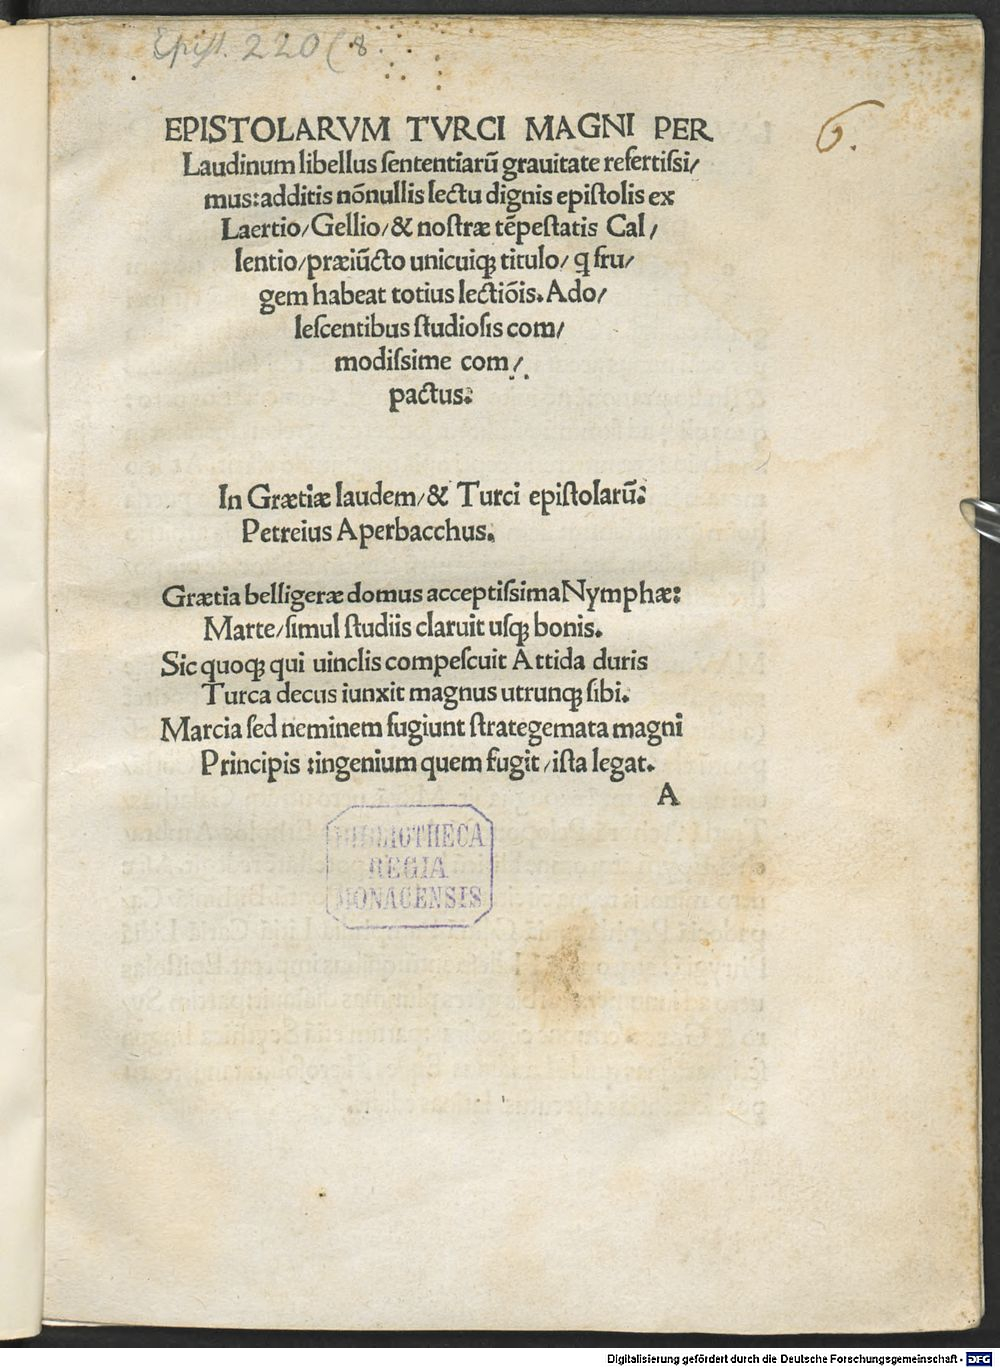 Epist. 220(8
6.
EPISTOLARVM TVRCI MAGNI PER
Laudinum libellus ſententiarū grauitate refertiſsi/
mus:additis nōnullis lectu dignis epiſtolis ex
Laertio/Gellio/& noſtræ tēpeſtatis Cal/
lentio/præiūcto unicuiqꝫ titulo/ q fru/
gem habeat totius lectiōis.Ado/
leſcentibus ſtudioſis com/
modiſsime com/
pactus:
In Grætiæ laudem/& Turci epiſtolarū:
Petreius Aperbacchus.
Grætia belligeræ domus acceptiſsima Nymphæ:
Marte/ſimul ſtudiis claruit uſqꝫ bonis.
Sic quoqꝫ qui uinclis compeſcuit Attida duris
Turca decus iunxit magnus utrunqꝫ ſibi.
Marcia ſed neminem fugiunt ſtrategemata magni
Principis :ingenium quem fugit/iſta legat.
A
BIBLIOTHECA
REGIA
MONACENSIS
Digitalisierung gefördert durch die Deutsche Forschungsgemeinschaft - DFG